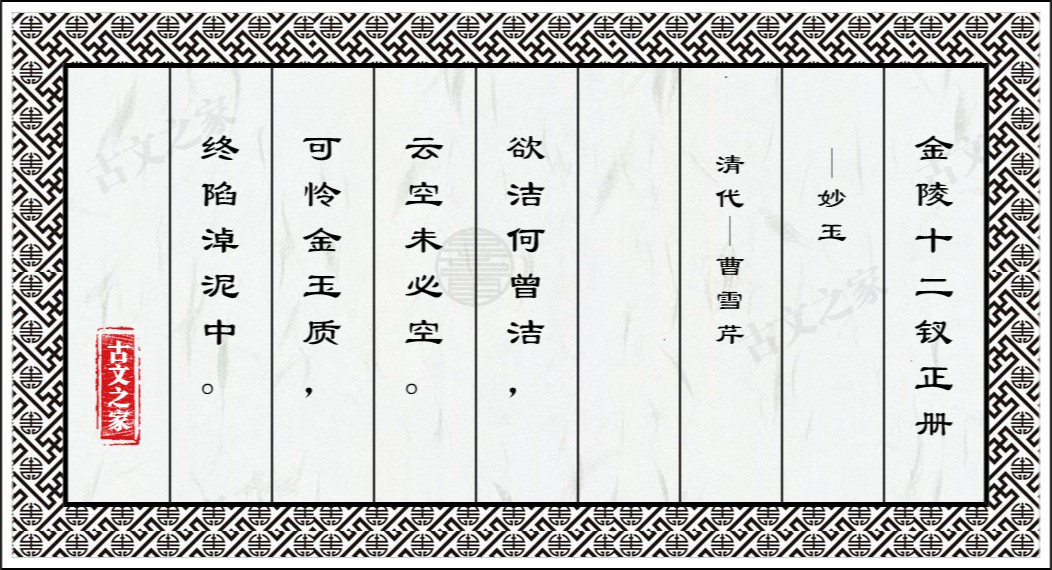 金陵十二钗正册
—妙玉
清代—曹雪芹
欲洁何曾洁，
云空未必空。
可怜金玉质，
终陷淖泥中。
古文之家
古文之家
古文之家